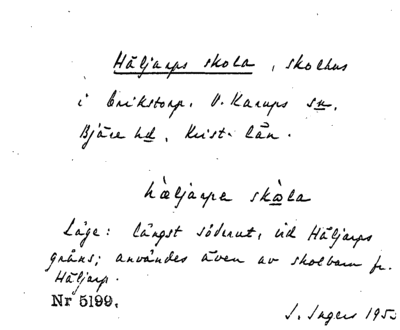 Häljarps skola, skolhus
i Erikstorp. V. Karups sn,
Bjäre hd, Krist. län.
hæljarpe skola
Läge: längst söderut, vid Häljarps
gräns; användes även av skolbarn fr.
Häljarp.
Nr 5199.
I. Ingers 195